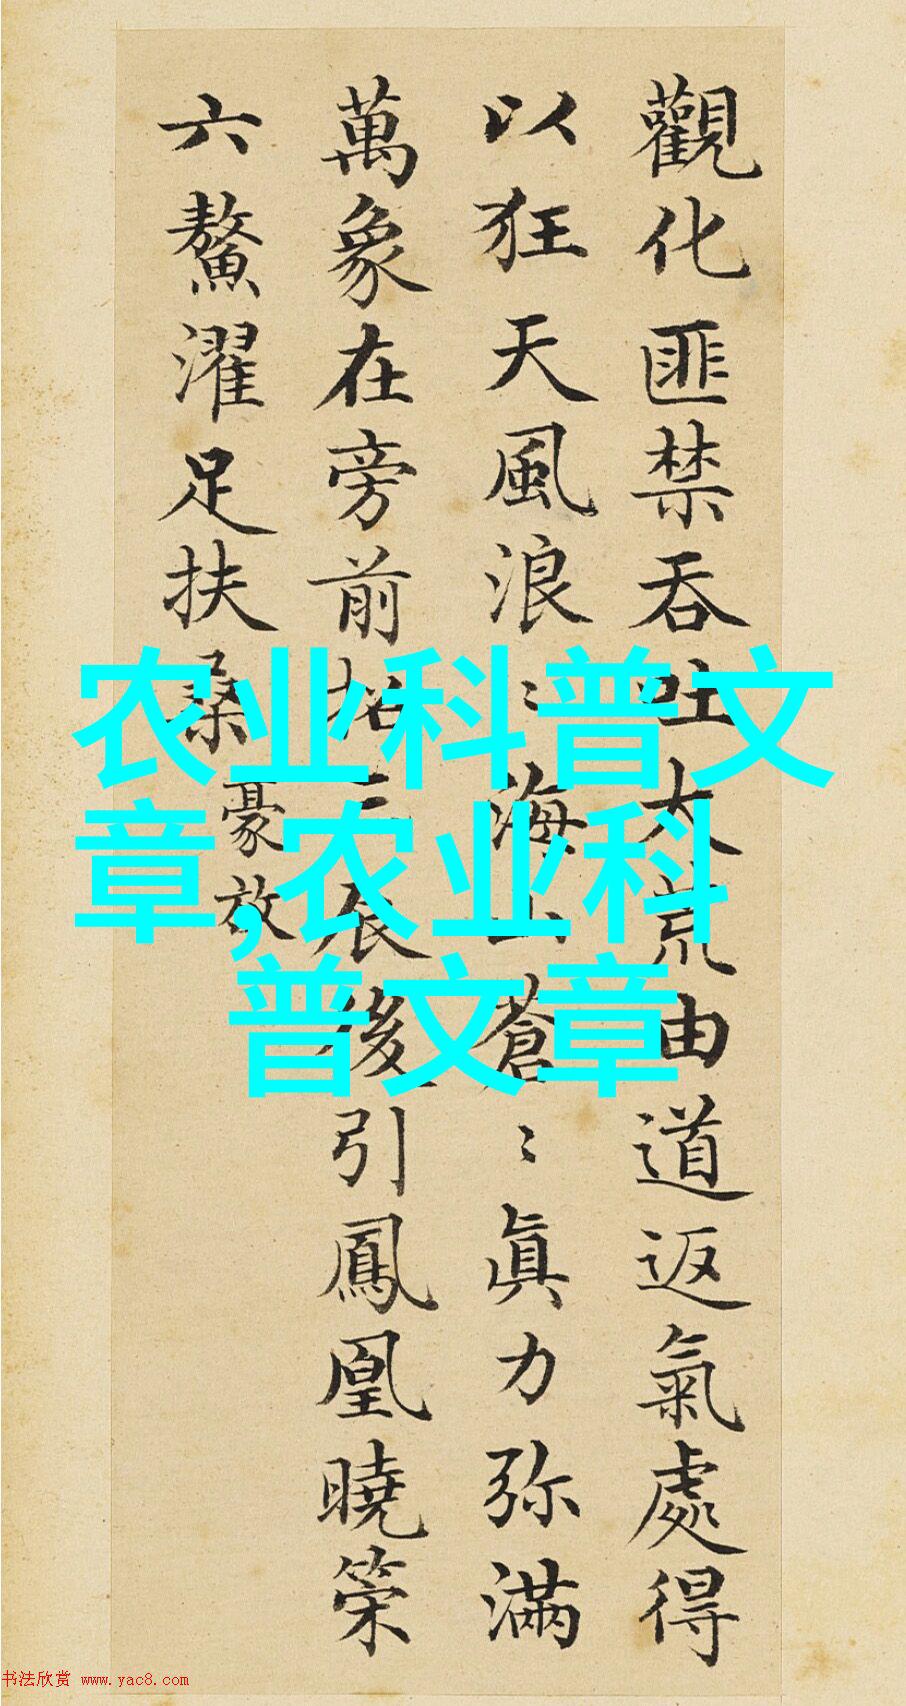 觀化匪禁吞吐大荒由道返氣處得
以狂天風浪〻海山蒼〻眞力弥滿
萬象在旁前招三辰後引鳳凰曉策
六鰲濯足扶桑
豪放
农业科普文
章,农业科
普文章
书法欣赏 www.yac8.com